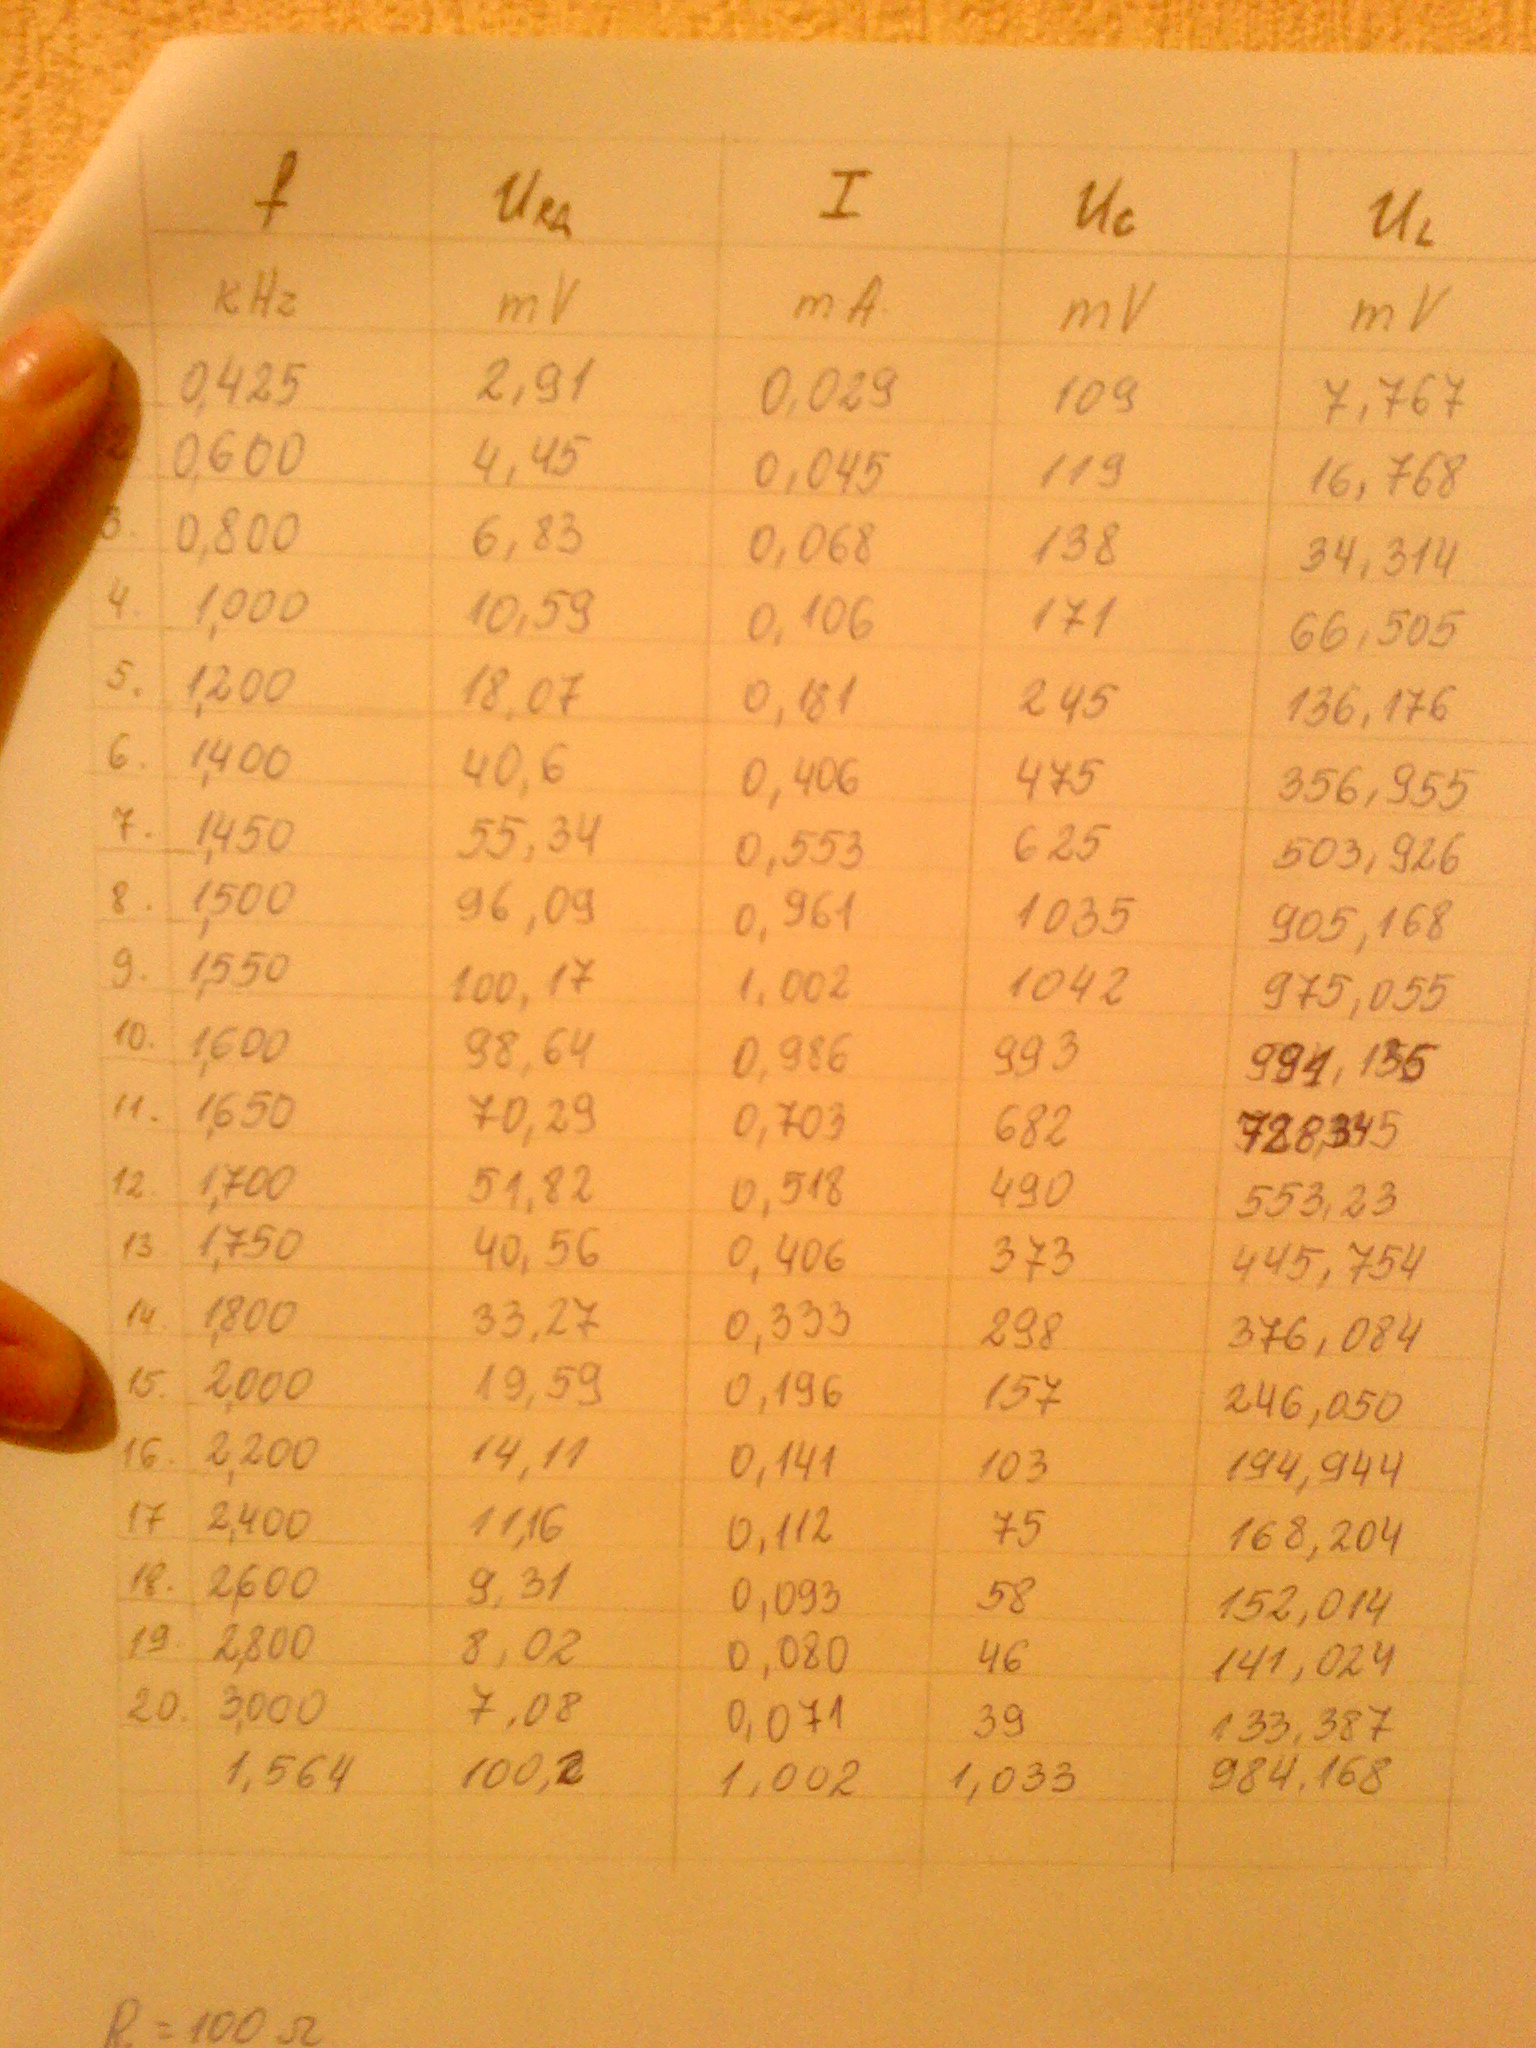 f U I Uc UL
kHz mV mA mV mV
0,425 2,91 0,029 109 7,767
0,600 4,45 0,045 119 16,768
3. 0,800 6,83 0,068 138 34,314
4. 1,000 10,59 0,106 171 66,505
5. 1,200 18,07 0,181 245 136,176
6. 1,400 40,6 0,406 475 356,955
7. 1,450 55,34 0,553 625 503,926
8. 1,500 96,09 0,961 1035 905,168
9. 1,550 100,17 1.002 1042 975,055
10. 1,600 98,64 0,986 993
11. 1,650 70,29 0,703 682 728,345
12. 1,700 51,82 0,518 490 553,23
13 1,750 40,56 0,406 373 445,754
14. 1,800 33,27 0,333 298 376,084
15. 2,000 19,59 0,196 157 246,050
16. 2,200 14,11 0,141 103 194,944
17 2,400 11,16 0,112 75 168,204
18. 2,600 9,31 0,093 58 152,014
19. 2,800 8,02 0,080 46 141,024
20. 3,000 7,08 0,071 39 133.387
1,564 100,2 1,002 1,033 984.168
R = 100 Ω